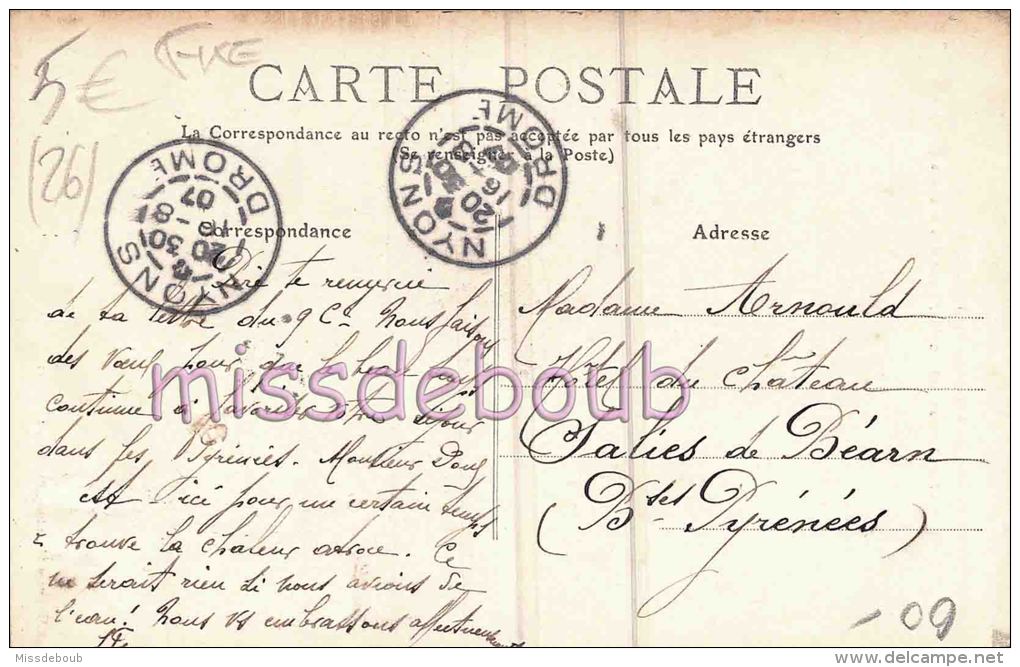 5€
FIXE
(26)
CARTE POSTALE
La Correspondance au recto n'est pas acceptée par tous les pays étrangers
(Se renseigner à la Poste)
NYONS DROME
20 30
16 - 8
07
NYONS DROME
20 30
Correspondance
Adresse
te remercie
de ta lettre du 9 Ct. Nous faisons
des vœux pour que le beau
continue à favoriser votre séjour
dans les Pyrénées. Monsieur
est ici pour un certain temps
& trouve la chaleur atroce. Ce
ne serait rien si nous avions de
l'eau! Nous vs embrassons affectueusement
Madame Arnould
Hôtel du Château
Salies de Béarn
(Bses Pyrénées)
missdeboub
-09
Missdeboub
http://www.delcampe.net